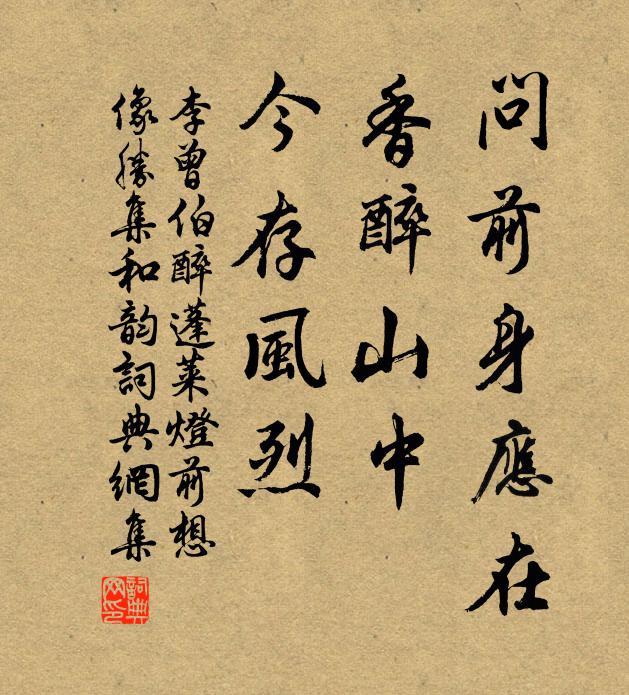 問前身應在
香醉山中
今存風烈
李曾伯醉蓬萊燈前想
像勝集和韵詞典網集
詞典网印